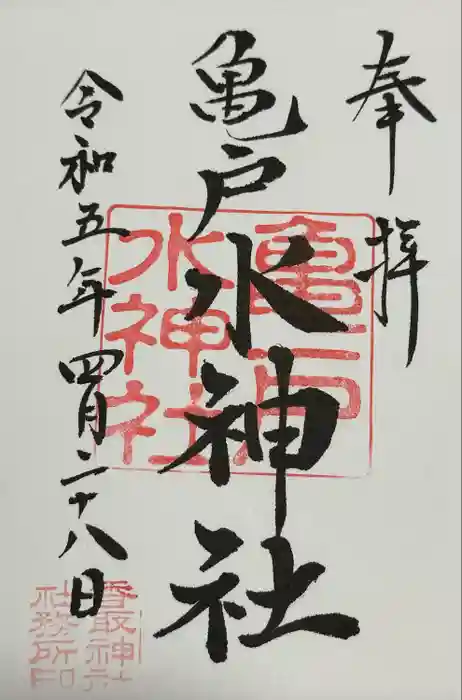 奉拝
亀戸水神社
令和五年四月二十八日
亀戸
水神社
香取神社
社務所印